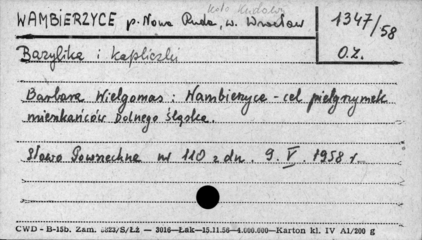 koło Kudowy
WAMBIERZYCE p. Nowa Ruda, w. Wrocław
1347/58
O.Z.
Bazylika i kapliczki
Barbara Wielgomas : Wambierzyce - cel pielgrzymek
mieszkańców Dolnego Śląska.
Słowo Powszechne nr 110 z dn. 9. V. 1958 r.
CWD - B-15b. Zam. 6823/S/Łż — 3016—Łak—15.11.56—4.000.000—Karton kl. IV A1/200 g